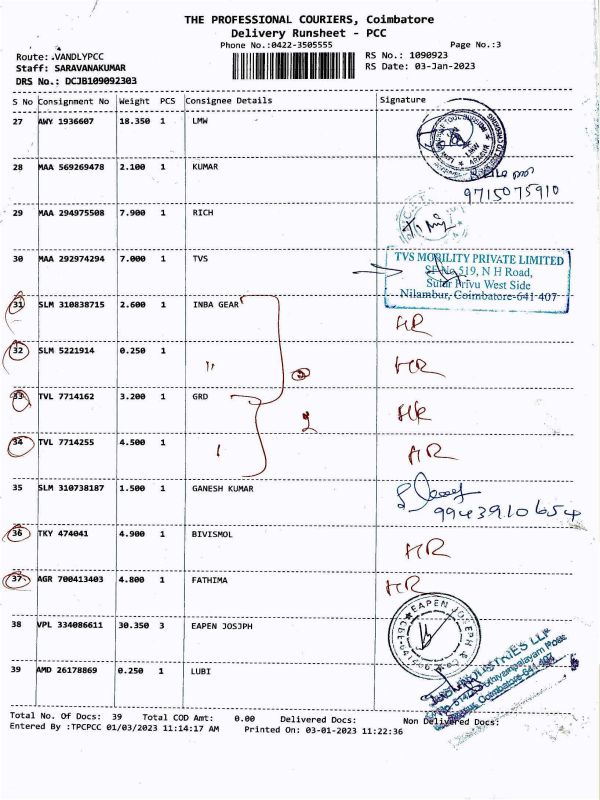 THE PROFESSIONAL COURIERS, Coimbatore
Delivery Runsheet - PCC
Phone No.:0422-3505555 Page No.:3
Route: VANDLYPCC RS No.: 1090923
Staff: SARAVANAKUMAR RS Date: 03-Jan-2023
DRS No.: DCJB109092303
S No Consignment No Weight PCS Consignee Details Signature
27 AWY 1936607 18.350 1 LMW
28 MAA 569269478 2.100 1 KUMAR
9715075910
29 MAA 294975508 7.900 1 RICH
30 MAA 292974294 7.000 1 TVS
TVS MOBILITY PRIVATE LIMITED
SF No 519, N H Road,
Sular Privu West Side
Nilambur, Coimbatore-641 407
31 SLM 310838715 2.600 1 INBA GEAR
HR
32 SLM 5221914 0.250 1 "
HR
33 TVL 7714162 3.200 1 GRD
HR
34 TVL 7714255 4.500 1
HR
35 SLM 310738187 1.500 1 GANESH KUMAR
9943910654
36 TKY 474041 4.900 1 BIVISMOL
HR
37 AGR 700413403 4.800 1 FATHIMA HR
38 VPL 334086611 30.350 3 EAPEN JOSJPH
EAPEN JOSEPH &
39 AMD 26178869 0.250 1 LUBI
INDUSTRIES LLP
Coimbatore-641 407
Total No. Of Docs: 39 Total COD Amt: 0.00 Delivered Docs: Non Delivered Docs:
Entered By :TPCPCC 01/03/2023 11:14:17 AM Printed On: 03-01-2023 11:22:36